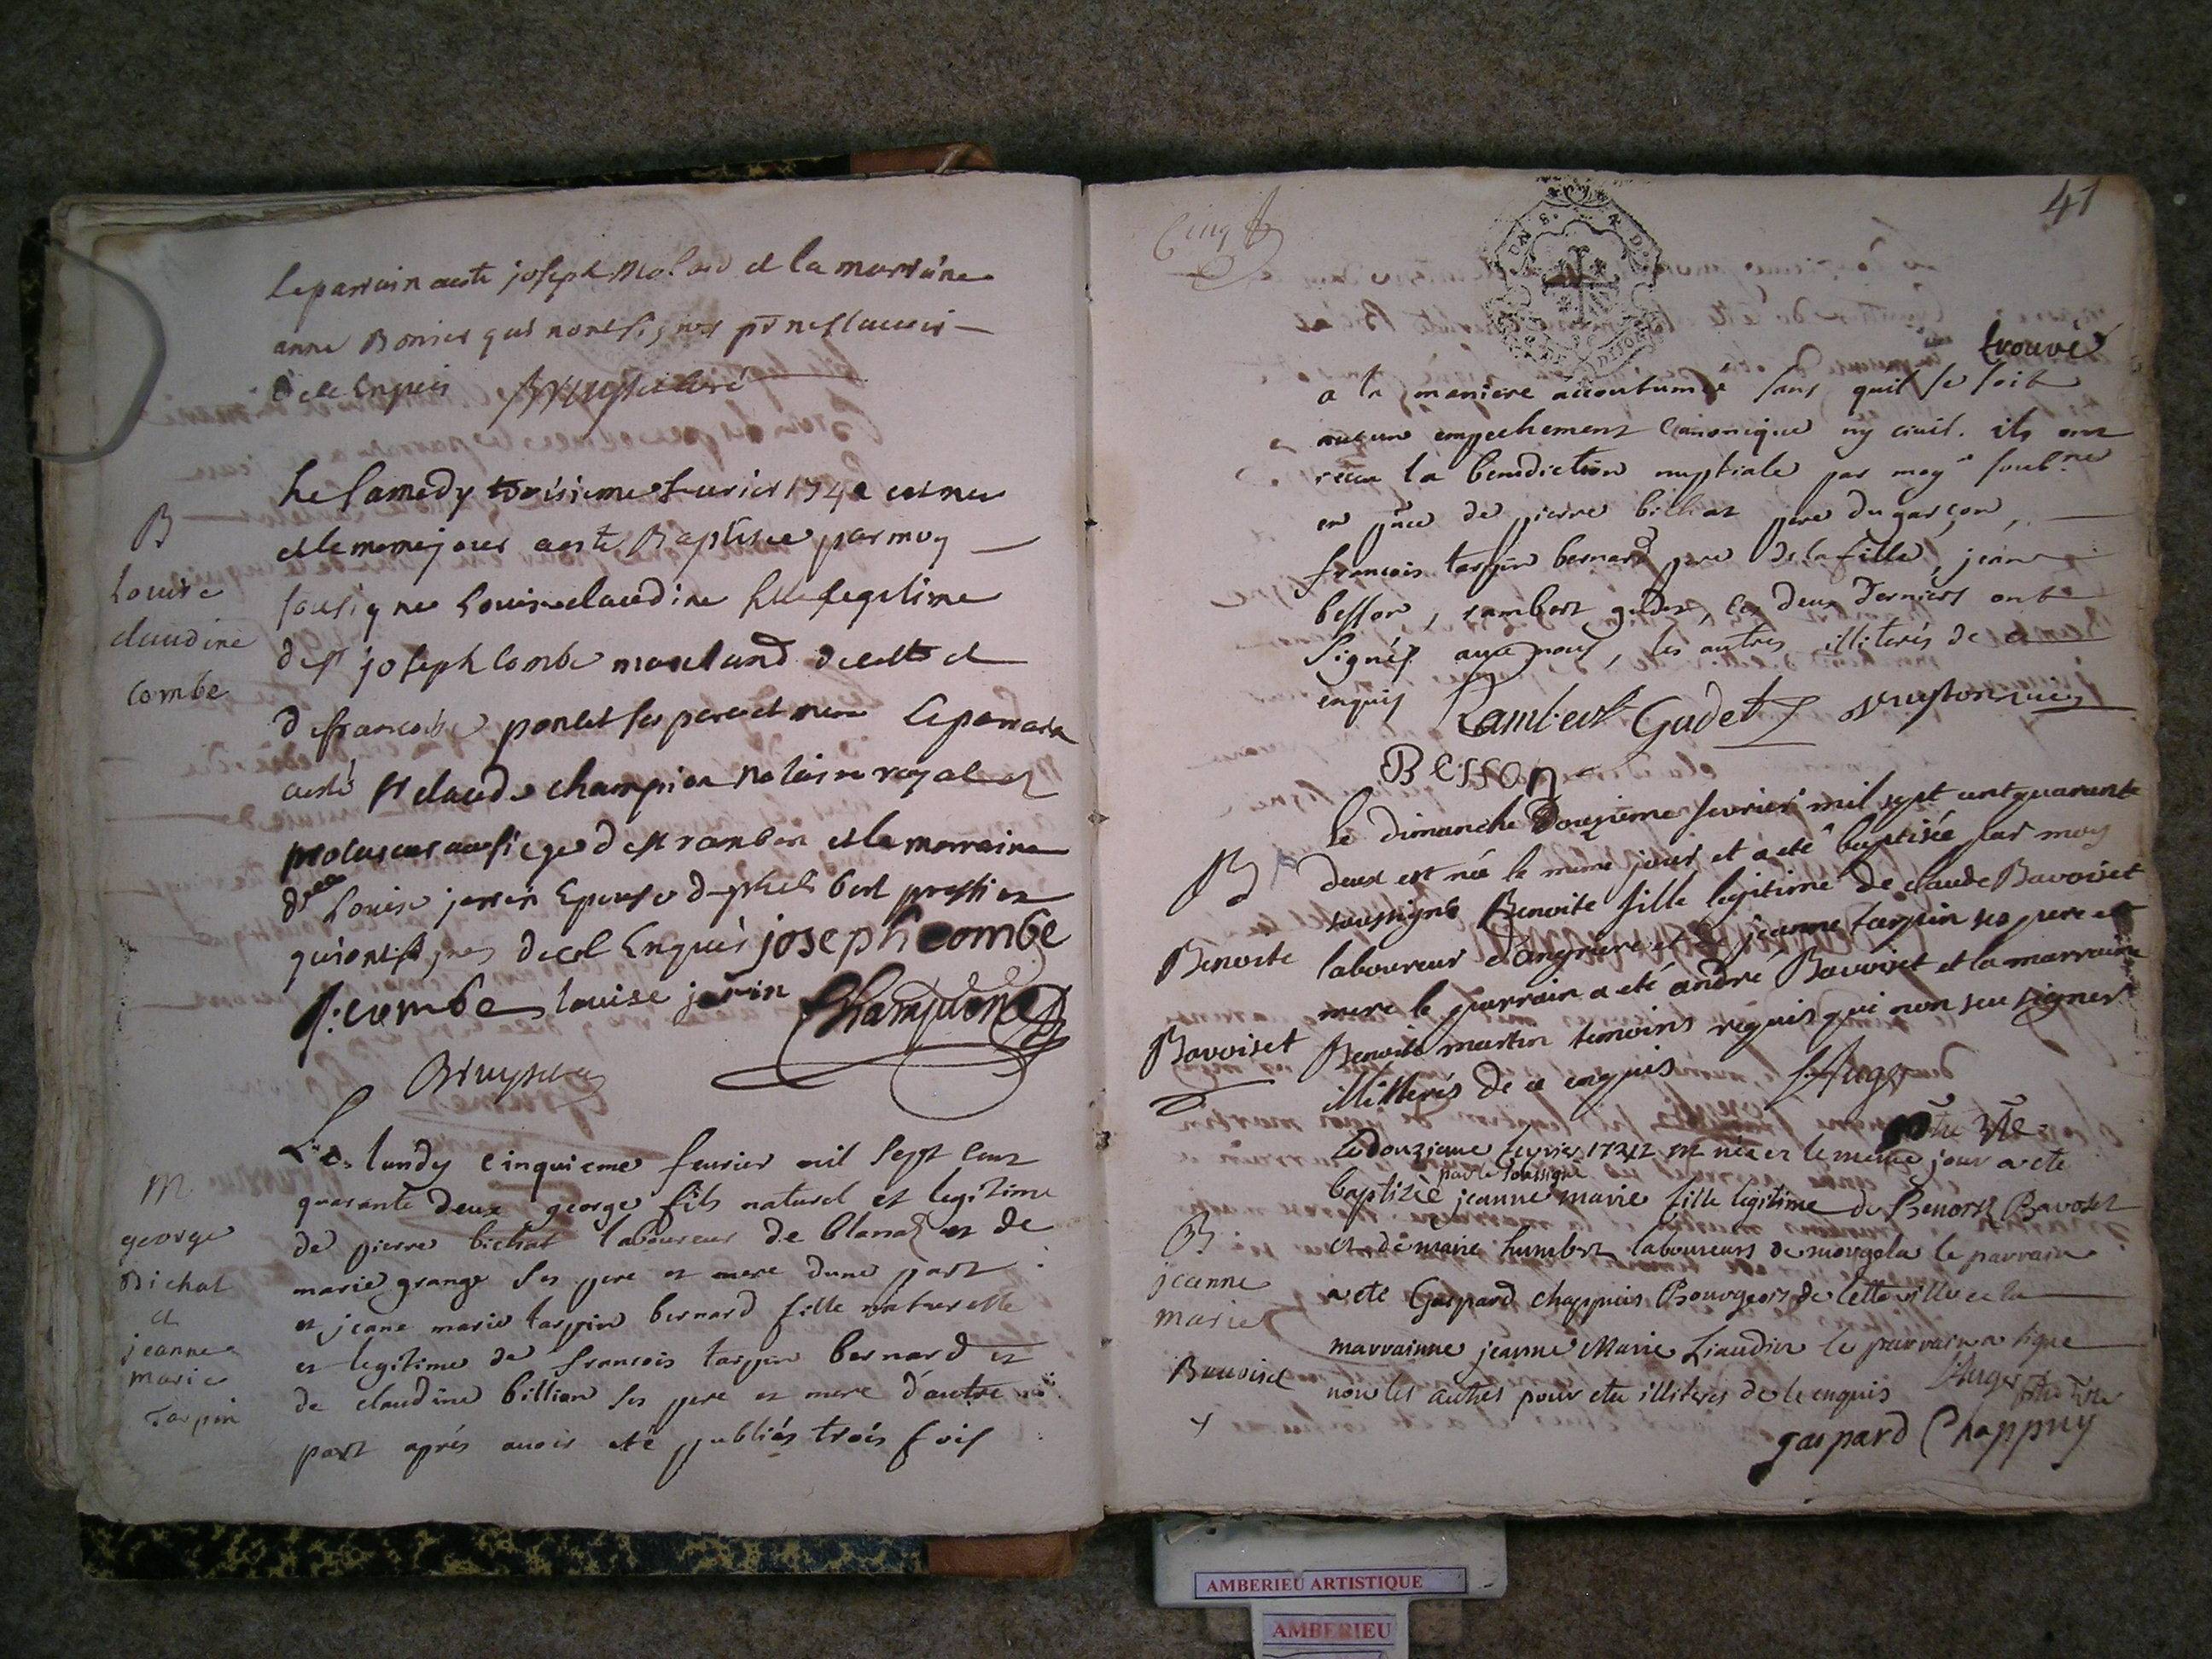 le parrain aesté joseph Molard et la marraine
anne Bonier qui nont signes pr ne scauoir
de ce Enquis
Le samedy troisieme feurier 1742 est nee
et le meme jour a esté Baptisée par moy
sousigne Louise claudine fille legitime
de sr joseph Combe marchand decette et
de francoise poncet ses pere et mere Le parrain
aesté sr claude champion notaire royal et
procureur au siege de st rambert et la marraine
dlle Louise jerrin Epouse de philibert prossier
qui ont signes de cel Enquis joseph combe
combe louise jerin Champion
B
Louise
claudine
combe
Le lundy cinquieme feurier mil sept cens
quarante deux george fils naturel et legitime
de pierre bichat laboureur de blanaz et de
marie grange ses pere et mere dune part
et jeane marie tarpin bernard fille naturelle
et legitime de francois tarpin bernard et
de claudine billion ses pere et mere d'autre
part après auoir été publiés trois fois
M
george
Bichat
et
jeanne
marie
Tarpin
Cinq
41
trouvé
a la maniere accoutumée sans quil se soit
aucun empechement Canonique ny ciuil. ils ont
receu la benediction nuptiale par moy soubne
en pnce de pierre bichat pere du garçon,
francois tarpin bernard pere de la fille, jean
besson, rambert gudet, les deux derniers ont
signés auec nous, les autres illiterés de ce
enquis Rambert Gudet
Besson
Le dimanche Douzieme fevrier mil sept cent quarante
deux est née le meme jour, et a eté baptisée par moy
soussigné Benoite fille legitime de claude Bavoiset
laboureur d'angrieres et de jeanne tarpin ses pere et
mere le parrain a eté andré Bavoiset et la marraine
Benoite martin temoins requis qui non seu signer
illitterés de ce enquis Auger
ptre vre
B
Benoite
Bavoiset
Le douzieme fevrier 1742 est née et le meme jour a ete
par le soussigné
baptizée jeanne marie fille legitime de Benoist Bavozet
et de marie humbert laboureurs de mongela le parrain
a eté Gaspard chappuis Bourgeois de Cette ville et la
marrainne jeanne Marie Liaudin le parrain a signe
non les autres pour etre illiteres de ce enquis Auger ptre vre
gaspard Chappuy
B
jeanne
marie
Bavoiset
AMBERIEU ARTISTIQUE
AMBERIEU